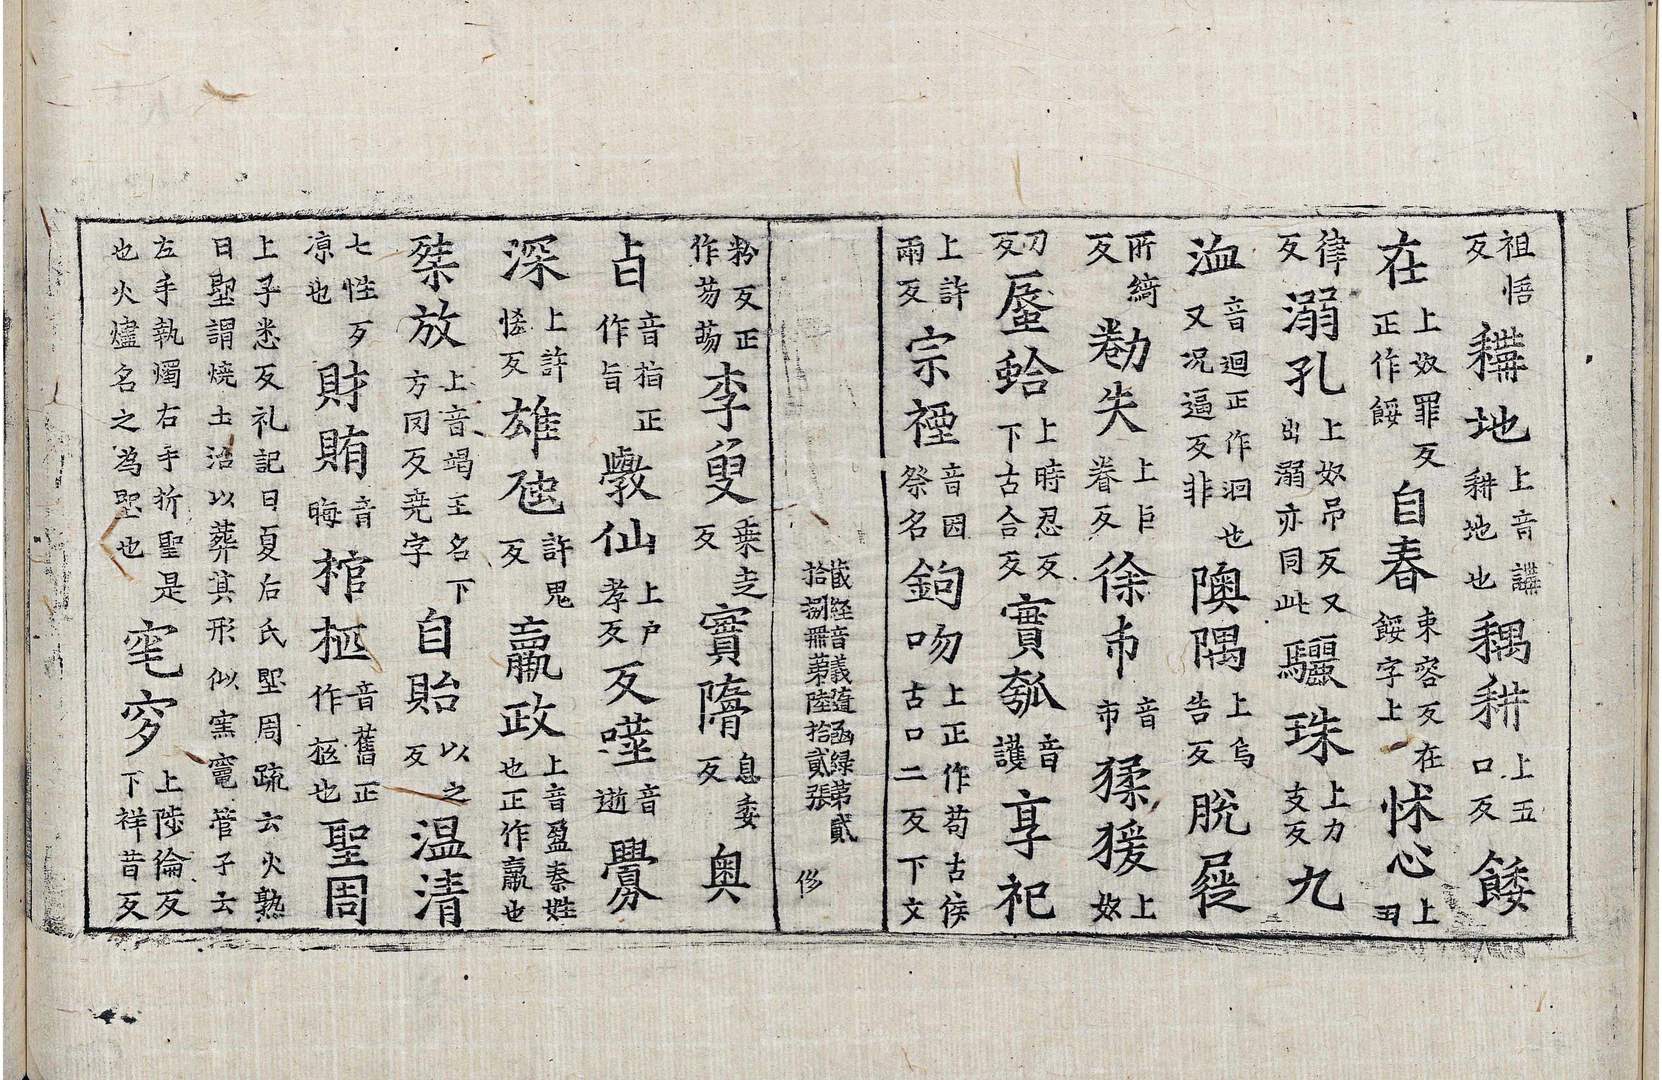 祖悟反 䎱地 上音講耕地也 耦耕 上五口反 餧
在 上奴罪反正作餒 自舂 東容反在餒字上 怵心 上丑
律反 溺孔 上奴吊反又出溺亦同此 驪珠 上力支反 九
洫 音迴正作洄也又況逼反非 隩隅 上烏告反 脫屣
所綺反 勌失 上巨眷反 徐巿 音巿 猱猨 上奴
刀反 蜃蛤 上時忍反下古合反 實瓠 音護 享祀
上許兩反 宗禋 音因祭名 鉤吻 上正作苟古侯古口二反下文
藏經音義隨函録第貳
拾捌冊第陸拾貳張 侈
粉反正作芴葛 李叟 桒走反 實隋 息委反 奧
㫖 音指正作旨 斆仙 上户孝反 反噬 音逝 釁
深 上許愮反 雄虺 許鬼反 嬴政 上音盈秦姓也正作嬴也
桀放 上音竭王名下方岡反堯字 自貽 以之反 温清
七性反凉也 財賄 音晦 棺柩 音舊正作柩也 聖周
上子悉反礼記曰夏后氏堲周䟽云火熟
曰聖謂燒土治以葬其形似窯竈管子云
左手執燭右手折聖是也火燼名之為堲也 窀穸 上陟倫反下祥昔反